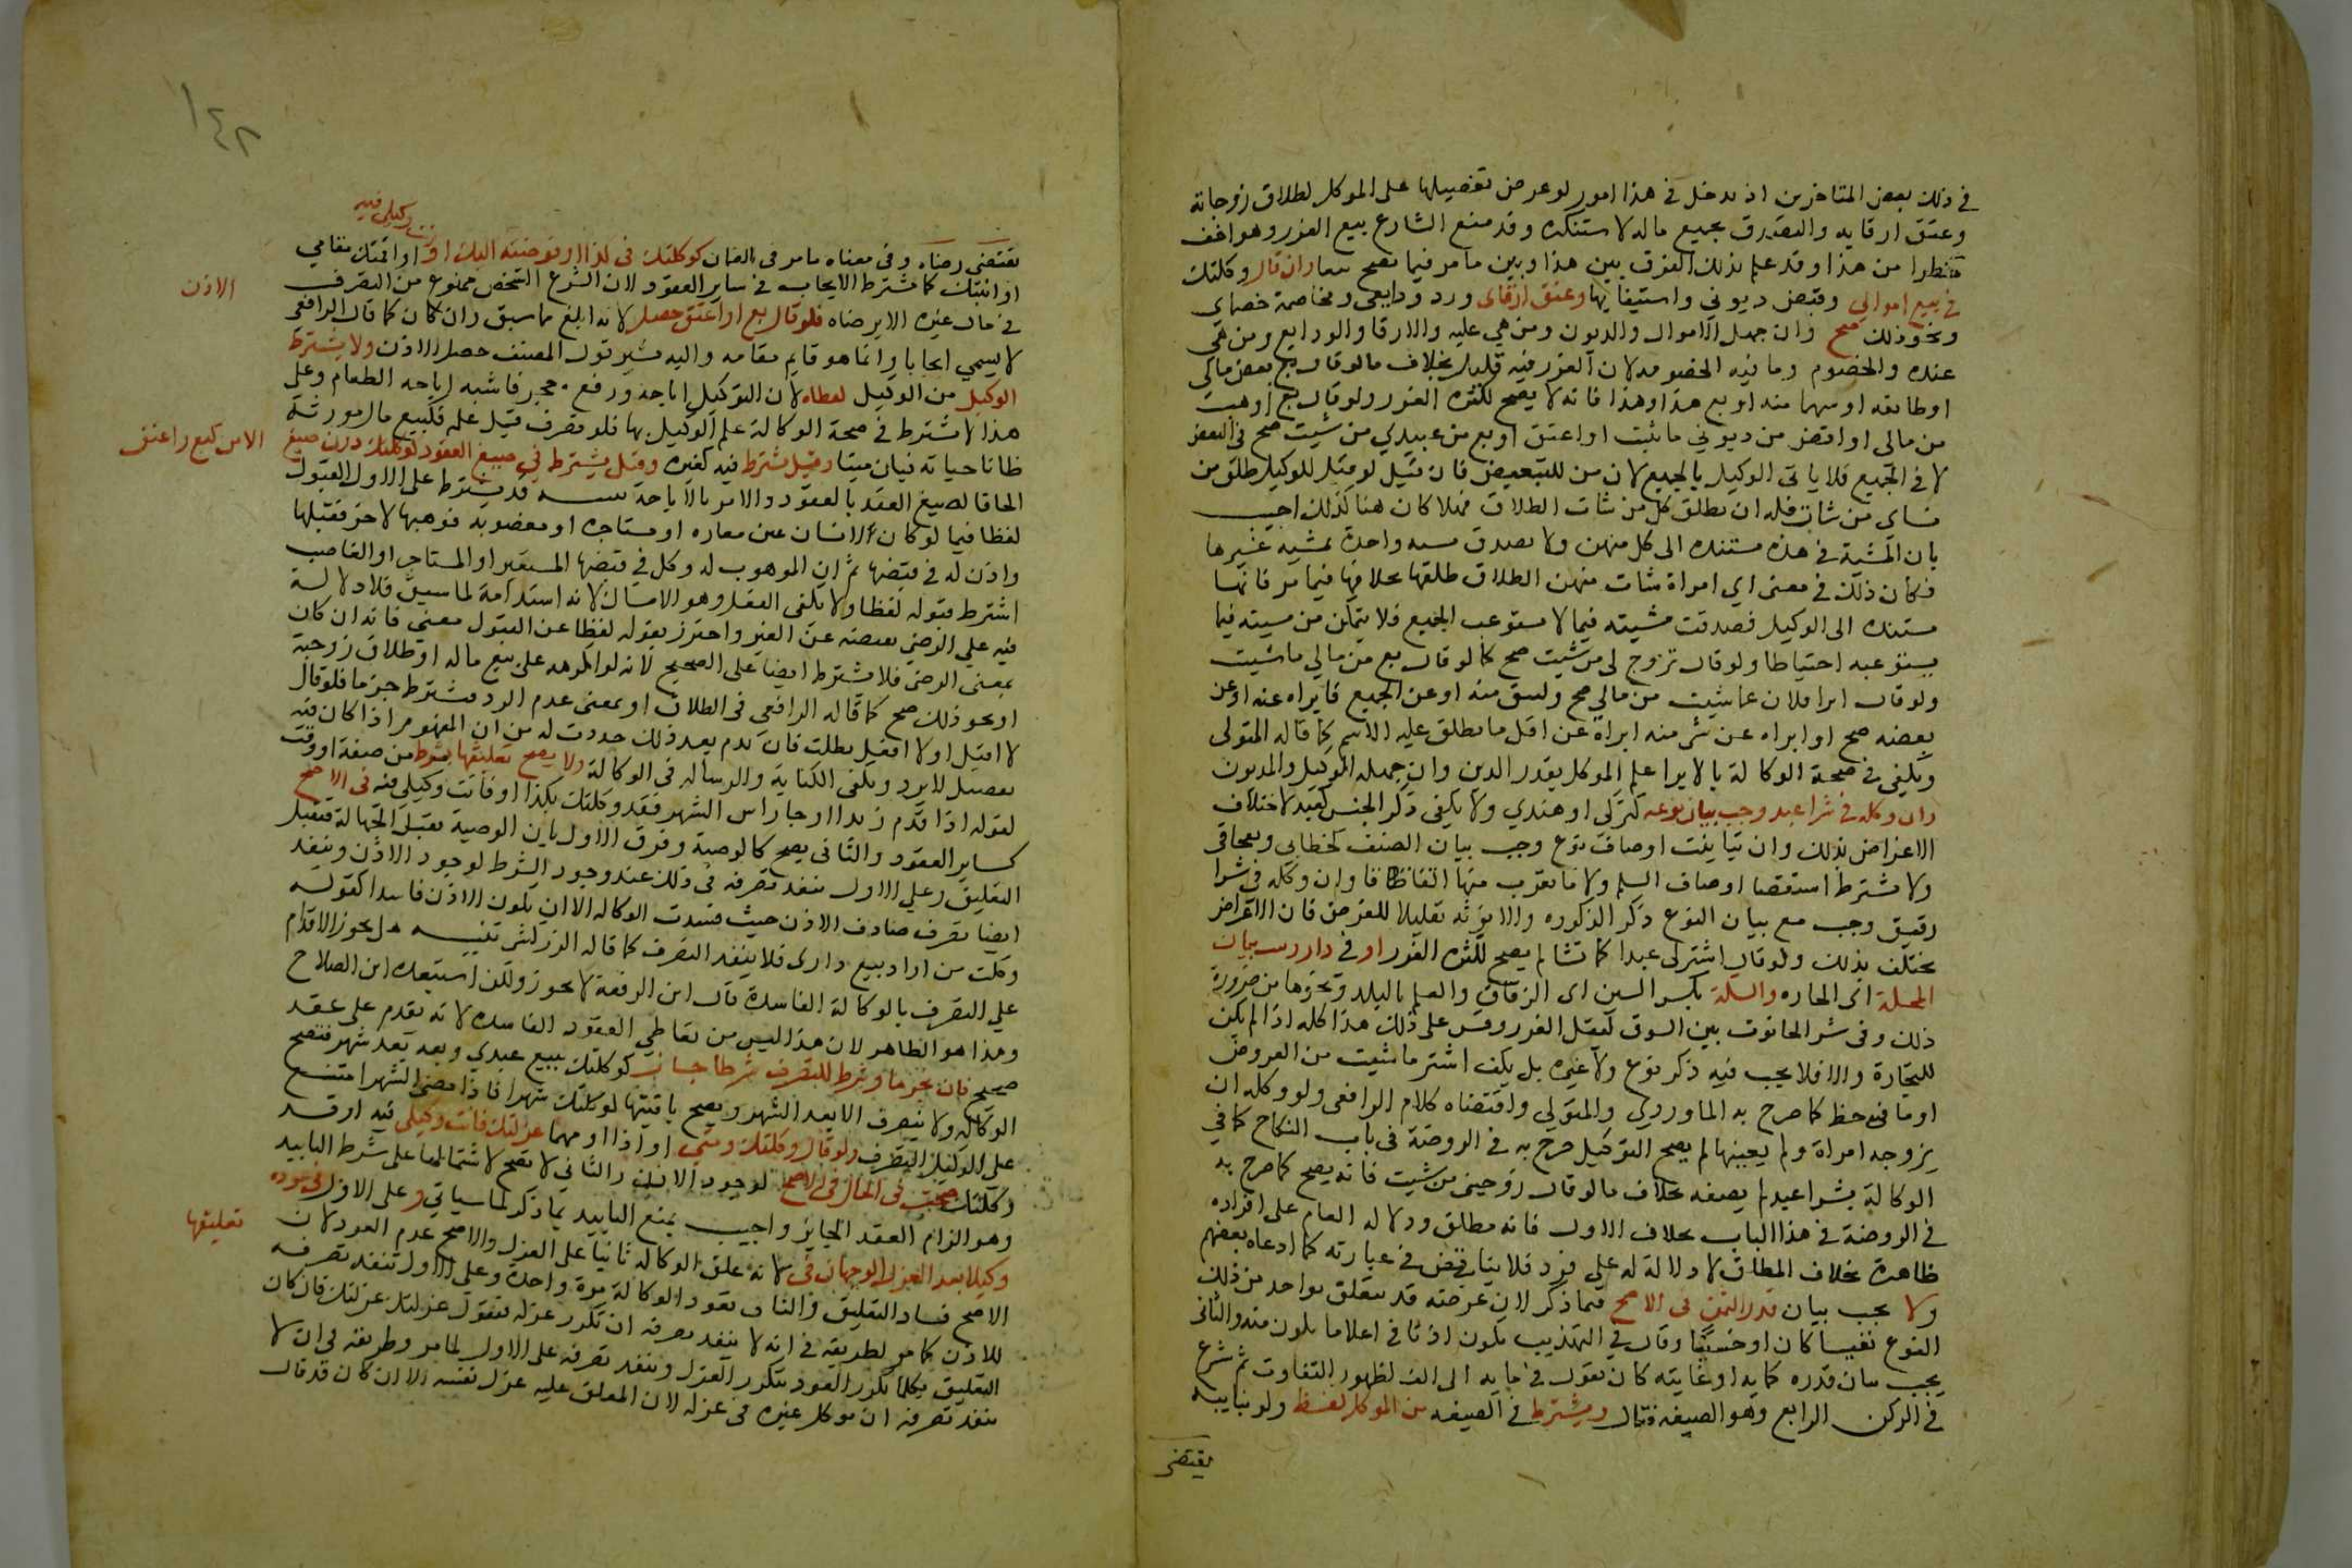 في ذلك بعض المتاخرين اذ يدخل في هذا امور لو عرض تفصيلها على الموكل لطلاق زوجاته
وعتق ارقايه والتصدق بجميع ماله لاستنكره وقد منع الشارع بيع الغرر وهو اخف
خطرا من هذا وقد علم بذلك الفرق بين هذا وبين ما مر فيما يصح معه وان قال وكلتك
في بيع اموالي وقبض ديوني واستيفايها وعتق ارقاي ورد ودايعي ومخاصمة خصماي
ونحو ذلك صح وان جهل الاموال والديون ومن هي عليه والارقا والودايع ومن هي
عنده والخصوم وما فيه الخصومه لان الغرر فيه قليل بخلاف ما لو قال بع بعض مالي
او طايفه او سهما منه او بع هذا وهذا فانه لا يصح لكثره الغرر ولو قال بع او هب
من مالي او اقتض من ديوني ما شيت او اعتق او بع من عبيدي من شيت صح في البعض
لا في الجميع فلا ياتي الوكيل بالجميع لان من للتبعيض فان قيل لو قيل للوكيل طلق من
نساي من شات فله ان يطلق كل من شات الطلاق فهلا كان هنا كذلك اجيب
بان المشية في هذه مستنده الى كل منهن ولا يصدق مشيه واحدة بمشيه غيرها
فكان ذلك في معنى اي امراة شات منهن الطلاق طلقها بخلافها فيما مر فانها
مستنده الى الوكيل فصدقت مشيته فيما لا يستوعب الجميع فلا يتمكن من مشيته فيما
يستوعبه احتياطا ولو قال تزوج لي من شيت صح كما لو قال بع من مالي ما شيت
ولو قال ابرا فلان عما شيت من مالي صح وليبق منه او عن الجميع فابراه عنه او عن
بعضه صح او ابراه عن شي منه ابراه عن اقل ما يطلق عليه الاسم كما قاله المتولي
ويكفي في صحة الوكالة بالابرا علم الموكل بقدر الدين وان جهله الوكيل والمديون
وان وكله في شرا عبد وجب بيان نوعه كتركي او هندي ولا يكفي ذكر الجنس كعبد لاختلاف
الاغراض بذلك وان تباينت اوصاف نوع وجب بيان الصنف كخطاي وقفجاقي
ولا يشترط استقصا اوصاف السلم ولا ما يقرب منها اتفاقا وان وكله في شرا
رقيق وجب مع بيان النوع ذكر الذكوره والانوثه تقليلا للغرر فان الاغراض
تختلف بذلك ولو قال اشتر لي عبدا كما تشا لم يصح لكثره الغرر او في دار وجب بيان
المحلة اي الحاره والسكة بكسر السين اي الزقاق والعلم بالبلد ونحوها من ضرورة
ذلك وفي شرا الحانوت بين السوق ليقل الغرر وقس على ذلك هذا كله اذا لم يكن
للتجارة والا فلا يجب فيه ذكر نوع ولا غيره بل يكفي اشتر ما شيت من العروض
او ما فيه حظ كما صرح به الماوردي والمتولي واقتضاه كلام الرافعي ولو وكله ان
يزوجه امراة ولم يعينها لم يصح التوكيل صرح به في الروضة في باب النكاح كما في
الوكالة بشرا عبد لم يصفه بخلاف ما لو قال زوجني من شيت فانه يصح كما صرح به
في الروضة في هذا الباب بخلاف الاول فانه مطلق ودلاله العام على افراده
ظاهرة بخلاف المطلق لا دلالة له على فرد فلا يتناقض في عبارته كما ادعاه بعضهم
ولا يجب بيان قدر الثمن في الاصح فيما ذكر لان غرضه قد يتعلق بواحد من ذلك
النوع نفيسا كان او خسيسا وقال في التهذيب يكون اذنا في اعلا ما يكون منه والثاني
يجب بيان قدره كمايه او غايته كان يقول في مايه الى الف لظهور التفاوت ثم شرع
في الركن الرابع وهو الصيغه فقال ويشترط في الصيغه من الموكل لفظ ولو بنايبه
يقتضي
١٤٢
يقتضي رضاه وفي معناه ما مر في الضمان كوكلتك في كذا او فوضته اليك او او اقمتك مقامي
انت وكيلي فيه
او انبتك كما يشترط الايجاب في ساير العقود لان الشرع الشخص ممنوع من التصرف
الاذن
في مال غيره الا برضاه فلو قال بع او اعتق حصل لانه ابلغ مما سبق وان كان كما قال الرافعي
لا يسمي ايجابا وانما هو قايم مقامه واليه يشير قول المصنف حصل الاذن ولا يشترط
الوكيل من الوكيل لفظا لان التوكيل اباحة ورفع حجر فاشبه اباحه الطعام وعلى
هذا لا يشترط في صحة الوكالة علم الوكيل بها فلو تصرف قبل علمه فكبيع مال مورثه
ظانا حياته فبان ميتا وقيل يشترط فيه كغيره وقيل يشترط في صيغ العقود كوكلتك دون صيغ
الامر كبع واعتق
الحاقا لصيغ العقد بالعقود والامر بالاباحة تنبيه قد يشترط على الاول القبول
لفظا فيما لو كان لانسان عين معاره او مستاجره او مغصوبه فوهبها لاخر فقبلها
واذن له في قبضها ثم ان الموهوب له وكل في قبضها المستعير او المستاجر او الغاصب
اشترط قبوله لفظا ولا يكفي الفعل وهو الامساك لانه استدامة لما سبق فلا دلالة
فيه على الرضي بقبضه عن الغير واحترز بقوله لفظا عن القبول معني فانه ان كان
بمعني الرضي فلا يشترط ايضا على الصحيح لانه لو اكرهه على بيع ماله او طلاق زوجته
او نحو ذلك صح كما قاله الرافعي في الطلاق او بمعني عدم الرد فيشترط جزما فلو قال
لا اقبل او لا افعل بطلت فان ندم بعد ذلك جددت له
ولا يصح تعليقها بشرط من صفة او وقت
لقوله اذا قدم زيد او جا راس الشهر فقد وكلتك بكذا او فانت وكيلي فيه في الاصح
كساير العقود والثاني يصح كالوصية وفرق الاول بان الوصية تقبل الجهالة فتقبل
التعليق وعلى الاول ينفذ تصرفه في ذلك عند وجود الشرط لوجود الاذن وينفذ
ايضا تصرف صادف الاذن حيث فسدت الوكاله الا ان يكون الاذن فاسدا كقوله
وكلت من اراد بيع داري فلا ينفذ التصرف كما قاله الزركشي تنبيه هل يجوز الاقدام
على التصرف بالوكالة الفاسدة قال ابن الرفعة لا يجوز ولكن استبعده ابن الصلاح
وهذا هو الظاهر لان هذا ليس من تعاطي العقود الفاسده لانه يقدم على عقد
صحيح فان نجزها وشرط للتصرف شرطا جاز كوكلتك ببيع عبدي وبعه بعد شهر فتصح
الوكاله ولا يتصرف الا بعد الشهر ويصح تاقيتها كوكلتك شهرا فاذا مضى الشهر امتنع
على الوكيل التصرف ولو قال وكلتك ومتي او اذا او مهما عزلتك فانت وكيلي فيه او قد
وكلتك صحت في الحال في الاصح لوجود الاذن والثاني لا تصح لاشتمالها على شرط التابيد
وهو الزام العقد الجايز واجيب بمنع التابيد بما ذكر لما سياتي وعلى الاول في عوده
وكيلا بعد العزل الوجهان في لانه علق الوكاله ثانيا على العزل والاصح عدم العود لان
تعليقها
الاصح فساد التعليق والثاني تعود الوكالة مرة واحدة وعلى الاول ينفذ تصرفه
للاذن كما مر لطريقه في انه لا ينفذ تصرفه ان تكرر عزله فيقول عزلتك عزلتك فان كان
التعليق بكلما تكرر العود بتكرر العزل وينفذ تصرفه على الاول لما مر وطريقه في ان لا
ينفذ تصرفه ان يوكل غيره في عزله لان المعلق عليه عزل نفسه الا ان كان قد قال